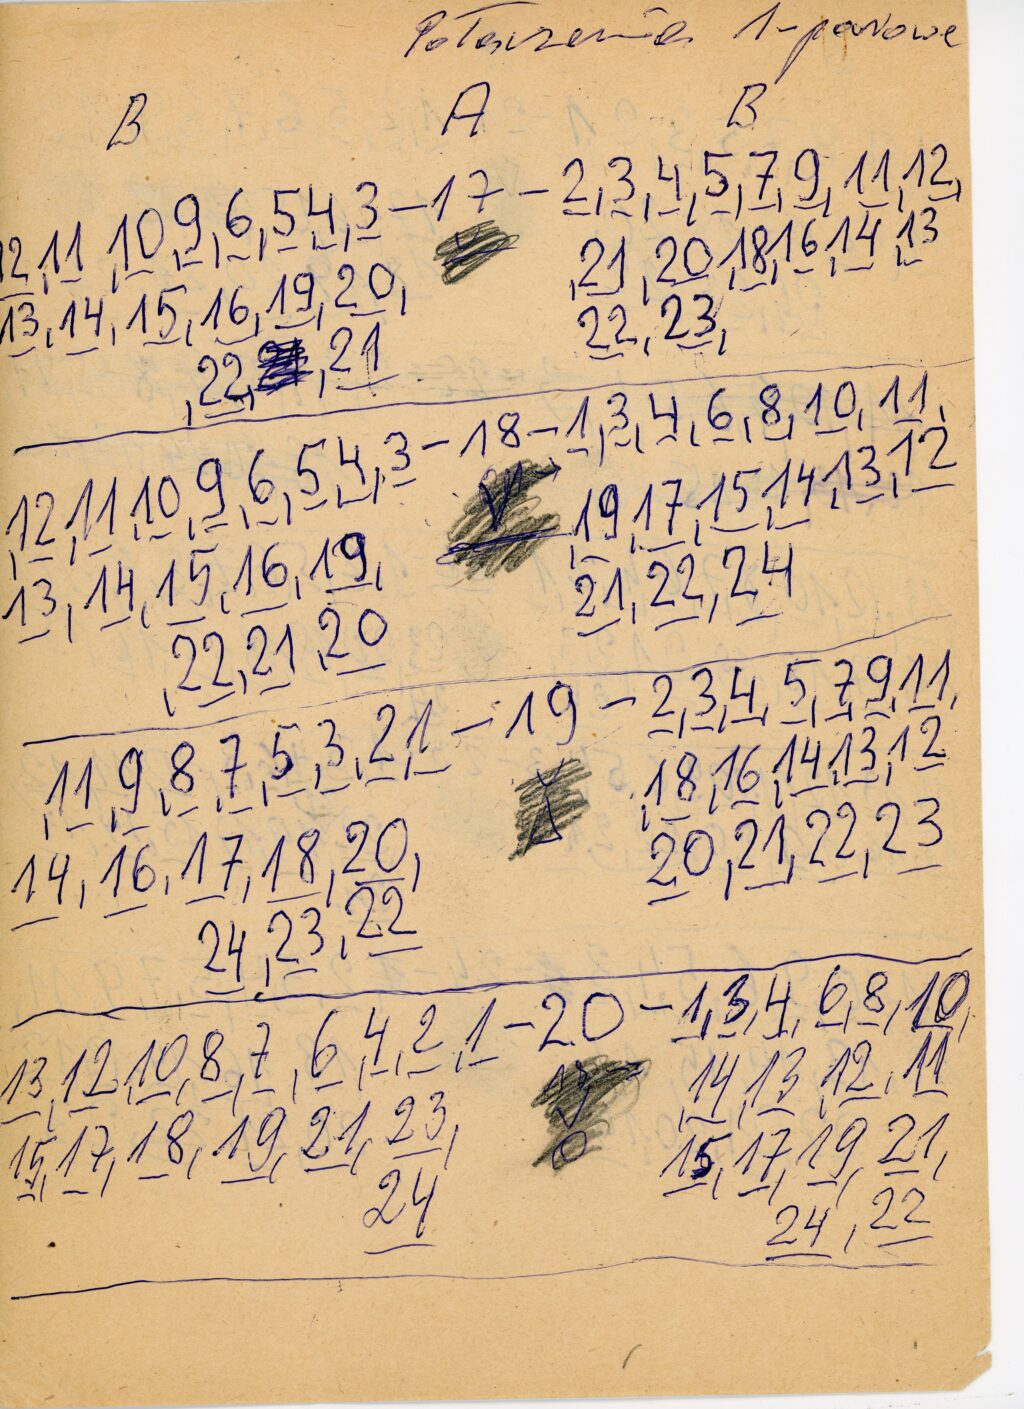 Połączenia 1-parowe
B A B
12, 11, 10, 9, 6, 5, 4, 3 – 17 – 2, 3, 4, 5, 7, 9, 11, 12,
13, 14, 15, 16, 19, 20, , 21, 20, 18, 16, 14, 13
, 22, , 21 22, 23,
, 12, 11, 10, 9, 6, 5, 4, 3 – 18 – 1, 3, 4, 6, 8, 10, 11,
13, 14, 15, 16, 19, , 19, 17, 15, 14, 13, 12
, 22, 21, 20 21, 22, 24
, 11, 9, 8, 7, 5, 3, 2, 1 – 19 – 2, 3, 4, 5, 7, 9, 11,
14, 16, 17, 18, 20, , 18, 16, 14, 13, 12
24, 23, 22 20, 21, 22, 23
13, 12, 10, 8, 7, 6, 4, 2, 1 – 20 – 1, 3, 4, 6, 8, 10,
15, 17, 18, 19, 21, 23, , 14, 13, 12, 11
24 15, 17, 19, 21,
24, 22